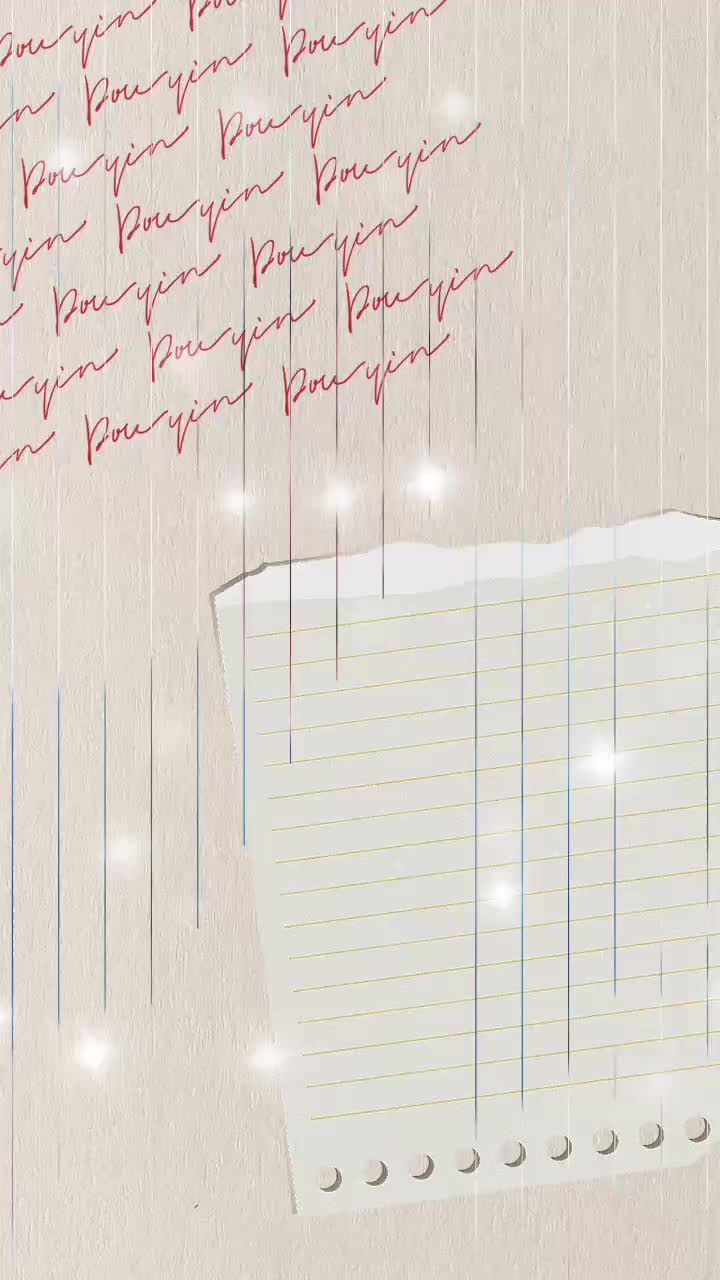 Douyin Douyin
n Douyin Douyin
Douyin Douyin
yin Douyin Douyin
Douyin Douyin
uyin Douyin Douyin
in Douyin Douyin